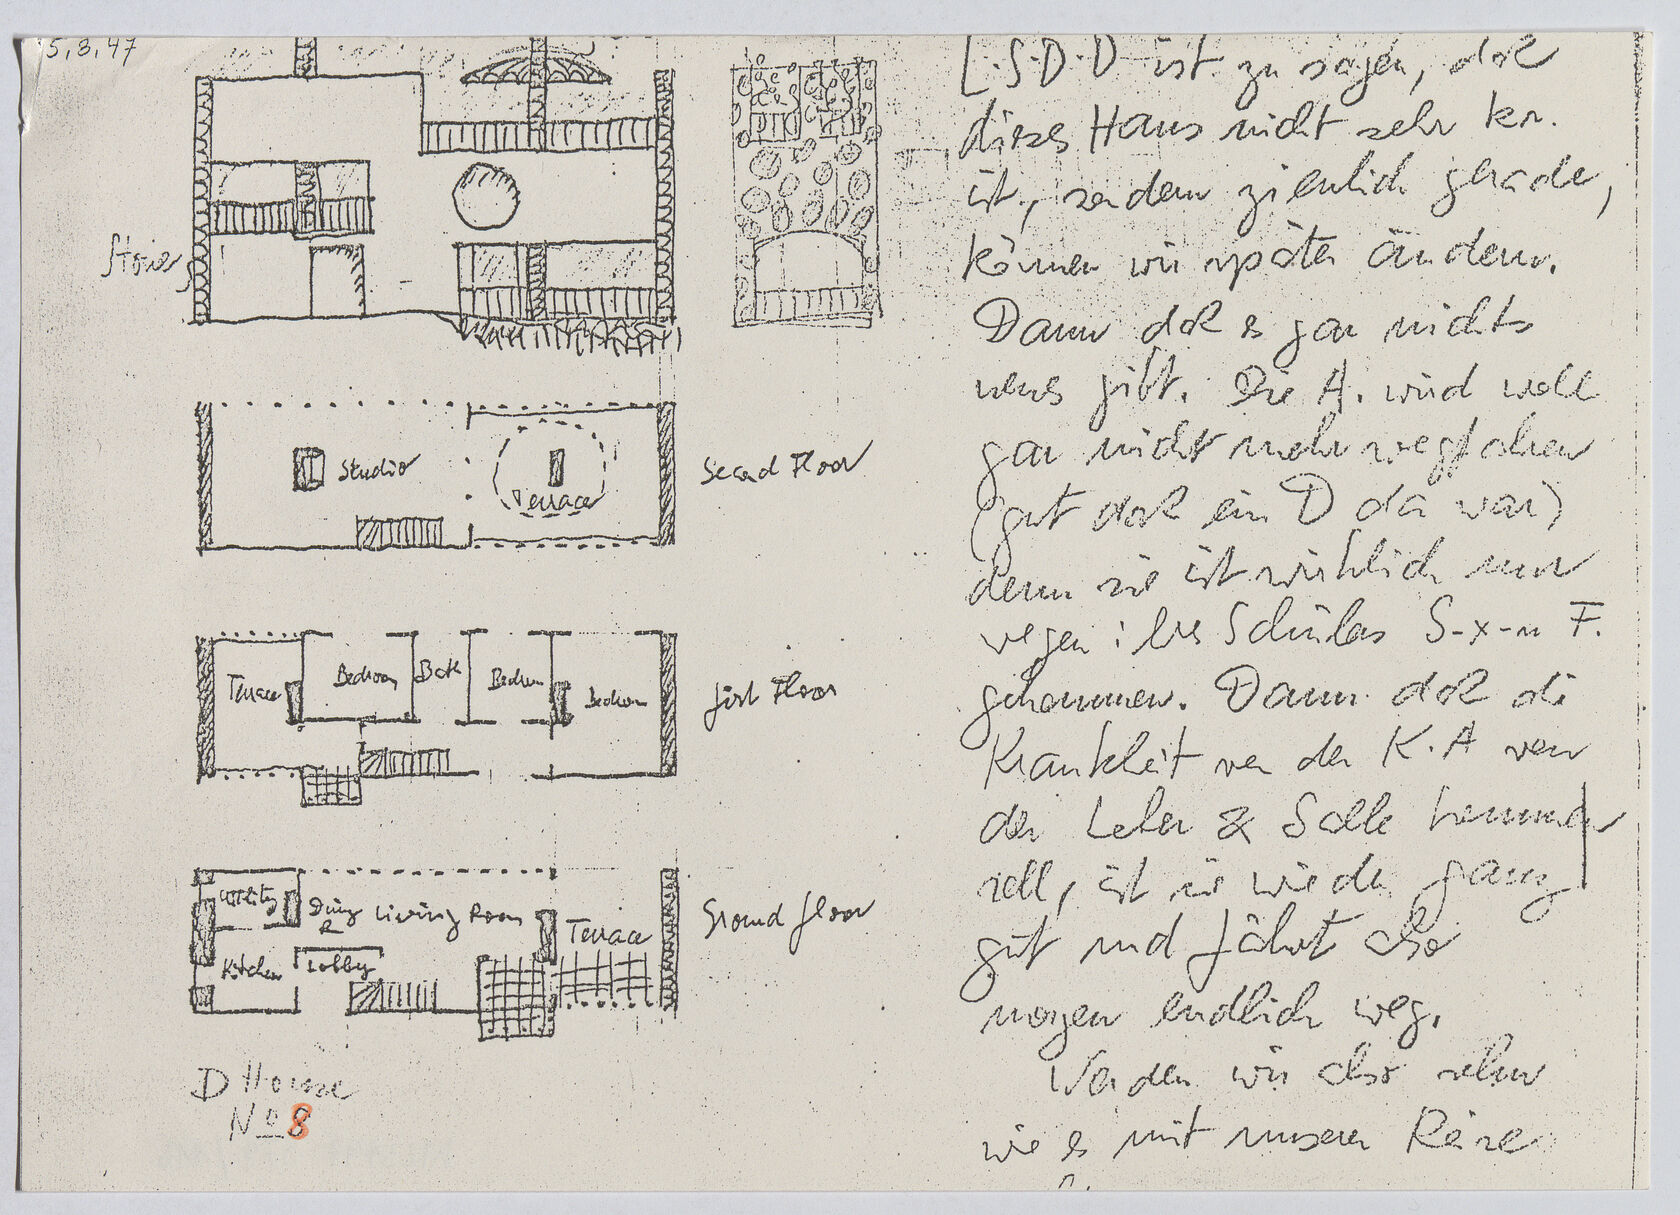 5.3.47
Stone
Studio
Terrace
Secod Floor
Terrace
Bedroom
Bath
Bedrom
Bedrom
first Floor
Utility
Dining R
Living Room
Terrace
Kitchen
Lobby
Ground floor
D House
No 8
L.S.D.D ist zu sagen, daß
dieses Haus nicht sehr kr.
ist, sondern ziemlich gerade,
können wir später ändern.
Dann daß es gar nichts
neues gibt. Die A. wird wohl
gar nicht mehr wegfahren
(gut daß ein D da war)
denn sie ist wirklich nur
wegen des Schülas S-x-n F.
gekommen. Dann daß die
Krankheit von der K.A von
der Leber & Galle kommen
soll, ist sie wieder ganz
gut und fährt also
morgen endlich weg.
Werden wir also sehen
wie es mit unserer Reise